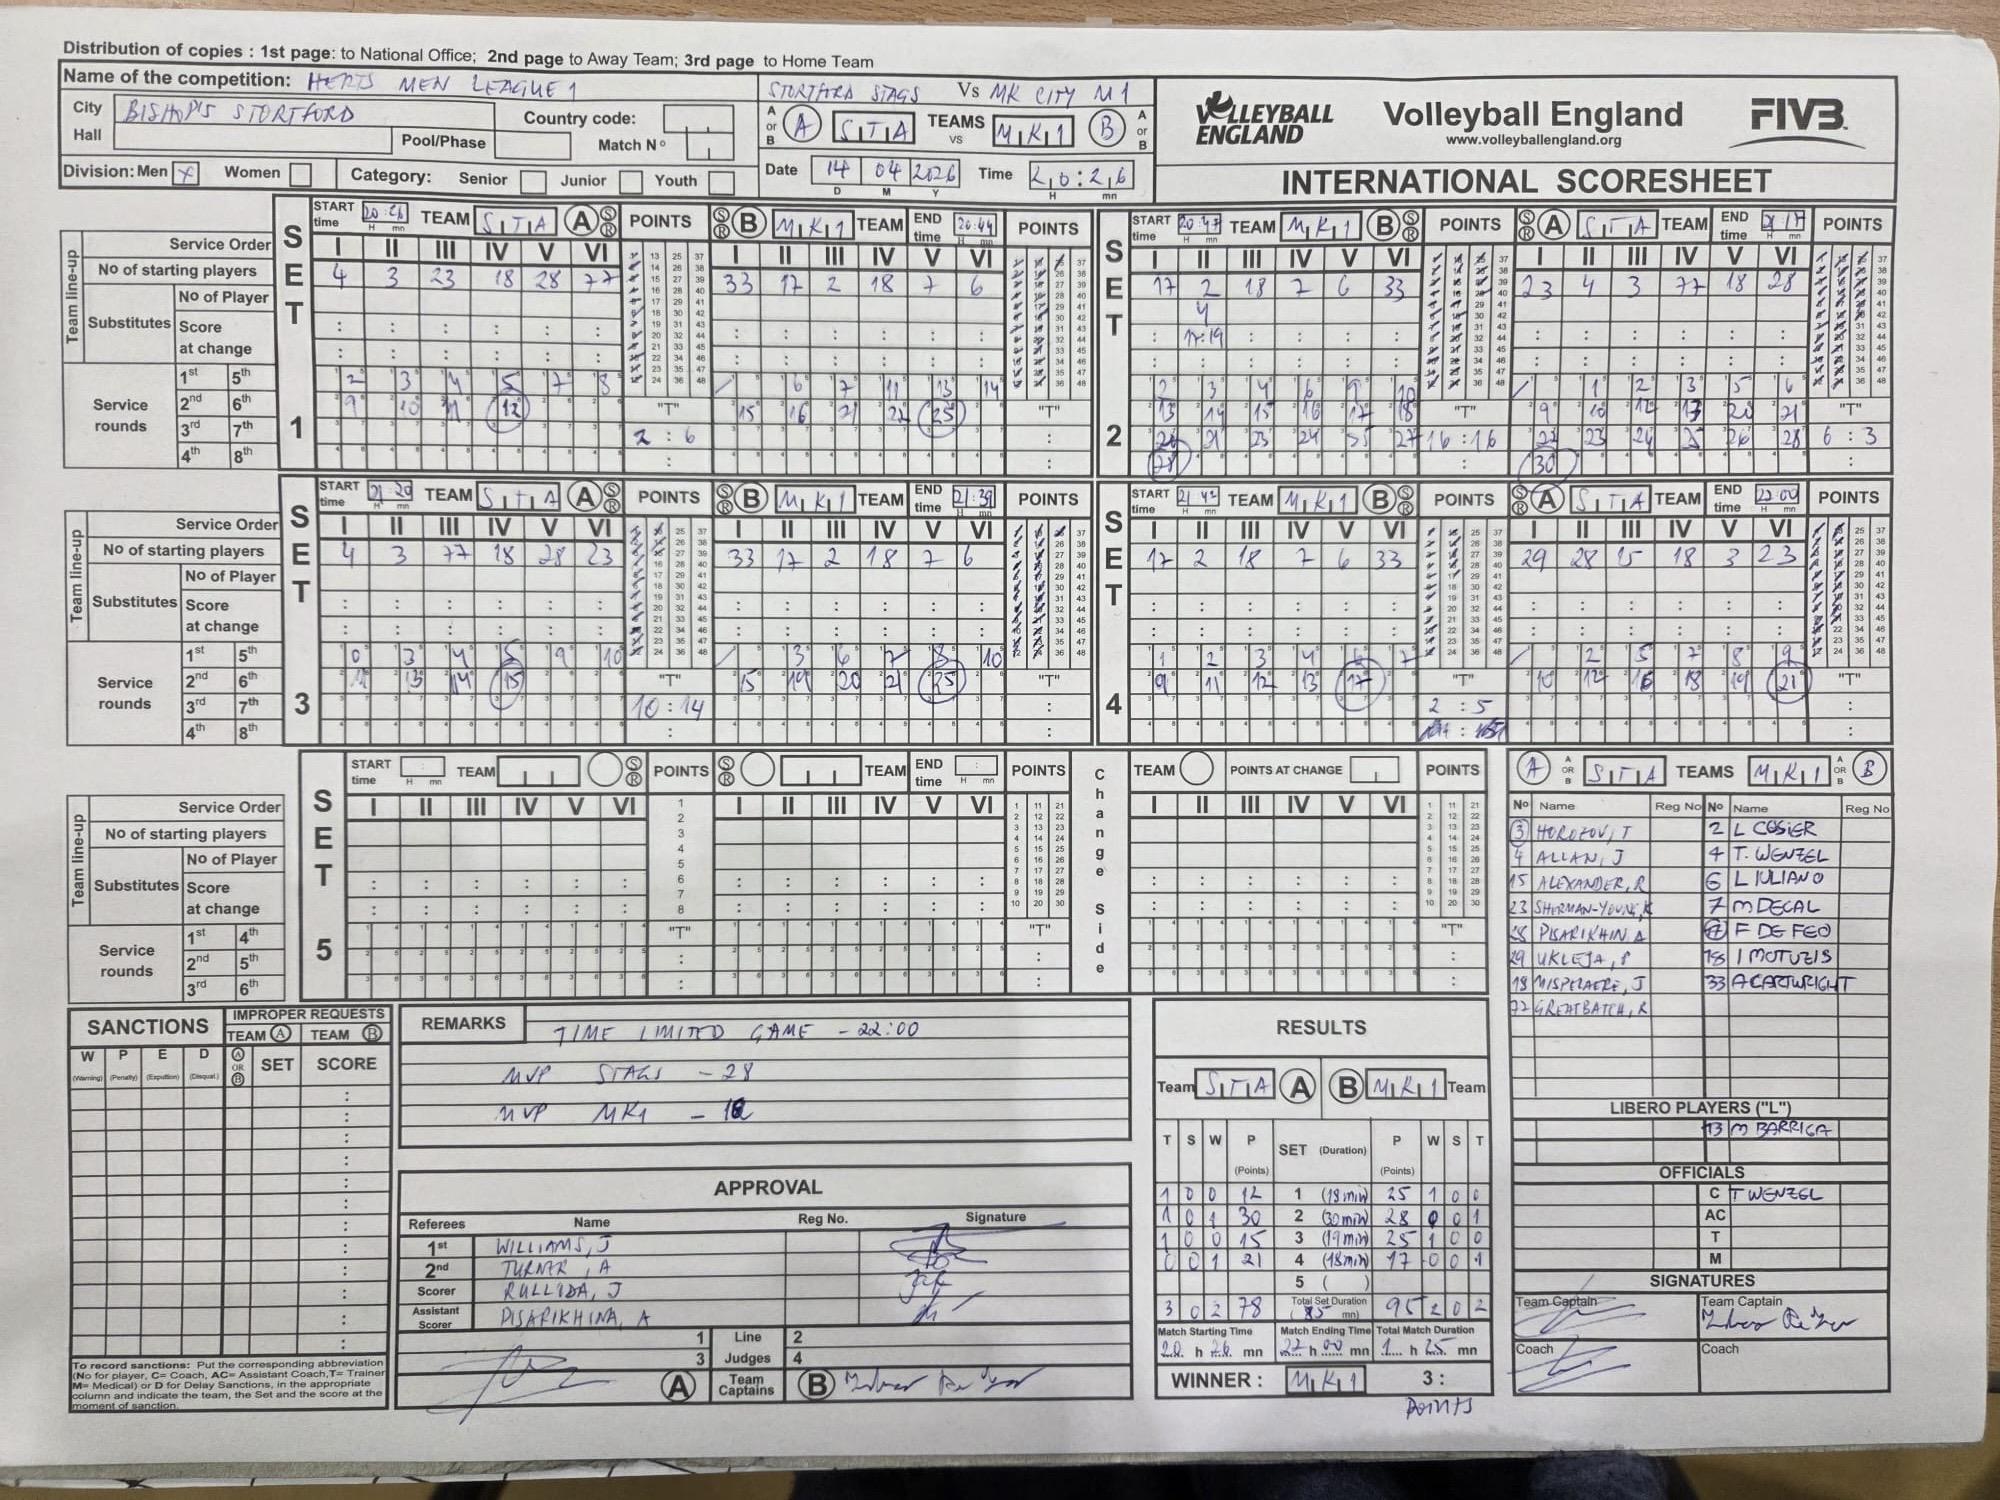 Distribution of copies : 1st page: to National Office; 2nd page to Away Team; 3rd page to Home Team
Name of the competition: HERTS MEN LEAGUE 1
STORTFORD STAGS Vs MK CITY M1
City BISHOP'S STORTFORD
Country code:
Hall
Pool/Phase
Match Nº
A or B (A) STA TEAMS vs MK1 (B) A or B
Division: Men x Women
Category: Senior Junior Youth
Date 14 04 2026 Time 20:26
D M Y H mn
VOLLEYBALL ENGLAND
Volleyball England
www.volleyballengland.org
FIVB
INTERNATIONAL SCORESHEET
SET 1
START time 20:26 TEAM STA (A) POINTS (B) MK1 TEAM END time 20:44 POINTS
Service Order I II III IV V VI I II III IV V VI
Team line-up
No of starting players 4 3 23 18 28 77 33 17 2 18 7 6
Substitutes No of Player
Score at change
Service rounds
1st 5th 2 3 4 5 7 8 6 7 11 13 14
2nd 6th 9 10 11 12 15 16 21 22 25
3rd 7th
4th 8th
"T" 2 : 6 "T"
SET 2
START time 20:47 TEAM MK1 (B) POINTS (A) STA TEAM END time 21:17 POINTS
I II III IV V VI I II III IV V VI
17 2 18 7 6 33 23 4 3 77 18 28
4
17:19
2 3 4 6 9 10 1 2 3 5 6
13 14 15 16 17 18 9 10 12 17 20 21
20 21 23 24 25 27 22 23 24 25 26 28
28 30
"T" 16 : 16 "T" 6 : 3
SET 3
START time 21:20 TEAM STA (A) POINTS (B) MK1 TEAM END time 21:39 POINTS
Service Order I II III IV V VI I II III IV V VI
Team line-up
No of starting players 4 3 77 18 28 23 33 17 2 18 7 6
Substitutes No of Player
Score at change
Service rounds
1st 5th 0 3 4 5 9 10 3 6 7 8 10
2nd 6th 11 13 14 15 15 19 20 21 25
3rd 7th
4th 8th
"T" 10 : 14 "T"
SET 4
START time 21:42 TEAM MK1 (B) POINTS (A) STA TEAM END time 22:00 POINTS
I II III IV V VI I II III IV V VI
17 2 18 7 6 33 29 28 15 18 3 23
1 2 3 4 6 7 2 5 7 8 9
9 11 12 13 17 10 12 16 18 19 21
"T" 2 : 5 "T"
SET 5
START time TEAM POINTS TEAM END time POINTS
Change Side
TEAM POINTS AT CHANGE POINTS
Service Order I II III IV V VI I II III IV V VI I II III IV V VI
Team line-up
No of starting players
Substitutes No of Player
Score at change
Service rounds
1st 4th
2nd 5th
3rd 6th
"T" "T" "T"
(A) A OR B STA TEAMS MK1 A OR B (B)
Nº Name Reg No Nº Name Reg No
3 HOROZOV, T 2 L COSIER
4 ALLAN, J 4 T. WENZEL
15 ALEXANDER, R 6 L IULIANO
23 SHERMAN-YOUNG, K 7 M DECAL
28 PISARIKHIN, A 17 F DE FEO
29 UKLEJA, P 18 I MOTUZIS
18 MISPELAERE, J 33 A CARTWRIGHT
77 GREATBATCH, R
LIBERO PLAYERS ("L")
13 M BARRIGA
OFFICIALS
C T WENZEL
AC
T
M
SIGNATURES
Team Captain Team Captain
Coach Coach
SANCTIONS
IMPROPER REQUESTS
TEAM (A) TEAM (B)
W P E D A OR B SET SCORE
(Warning) (Penalty) (Expultion) (Disqual.)
To record sanctions: Put the corresponding abbreviation
(No for player, C= Coach, AC= Assistant Coach,T= Trainer
M= Medical) or D for Delay Sanctions, in the appropriate
column and indicate the team, the Set and the score at the
moment of sanction.
REMARKS
TIME LIMITED GAME - 22:00
MVP STAGS - 28
MVP MK1 -
APPROVAL
Referees Name Reg No. Signature
1st WILLIAMS, J
2nd TURNER, A
Scorer RULLIDA, J
Assistant Scorer PISARIKHINA, A
1 Line 2
3 Judges 4
(A) Team Captains (B)
RESULTS
Team STA (A) (B) MK1 Team
T S W P SET (Duration) P W S T
(Points) (Points)
1 0 0 12 1 (18 min) 25 1 0 0
1 0 1 30 2 (30 min) 28 0 0 1
1 0 0 15 3 (19 min) 25 1 0 0
0 0 1 21 4 (18 min) 17 0 0 1
5 ( )
3 0 2 78 Total Set Duration (85 mn) 95 2 0 2
Match Starting Time Match Ending Time Total Match Duration
20 h 26 mn 22 h 00 mn 1 h 25 mn
WINNER : MK1 3 :
POINTS